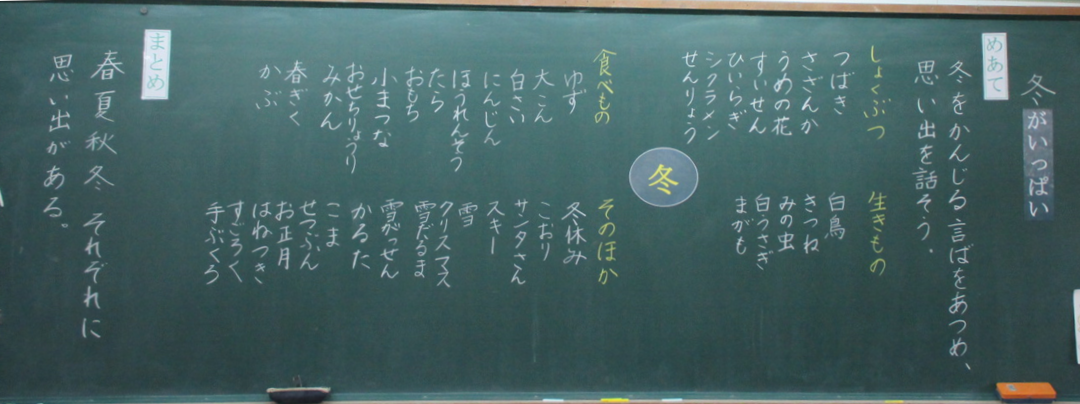 冬がいっぱい
めあて
冬をかんじる言ばをあつめ、
思い出を話そう。
しょくぶつ
つばき
さざんか
うめの花
すいせん
ひいらぎ
シクラメン
せんりょう
生きもの
白鳥
きつね
みの虫
白うさぎ
まがも
冬
食べもの
ゆず
大こん
白さい
にんじん
ほうれんそう
たら
おもち
小まつな
おせちりょうり
みかん
春ぎく
かぶ
そのほか
冬休み
こおり
サンタさん
スキー
雪
クリスマス
雪だるま
雪がっせん
かるた
こま
せつぶん
お正月
はねつき
すごろく
手ぶくろ
まとめ
春夏秋冬それぞれに
思い出がある。